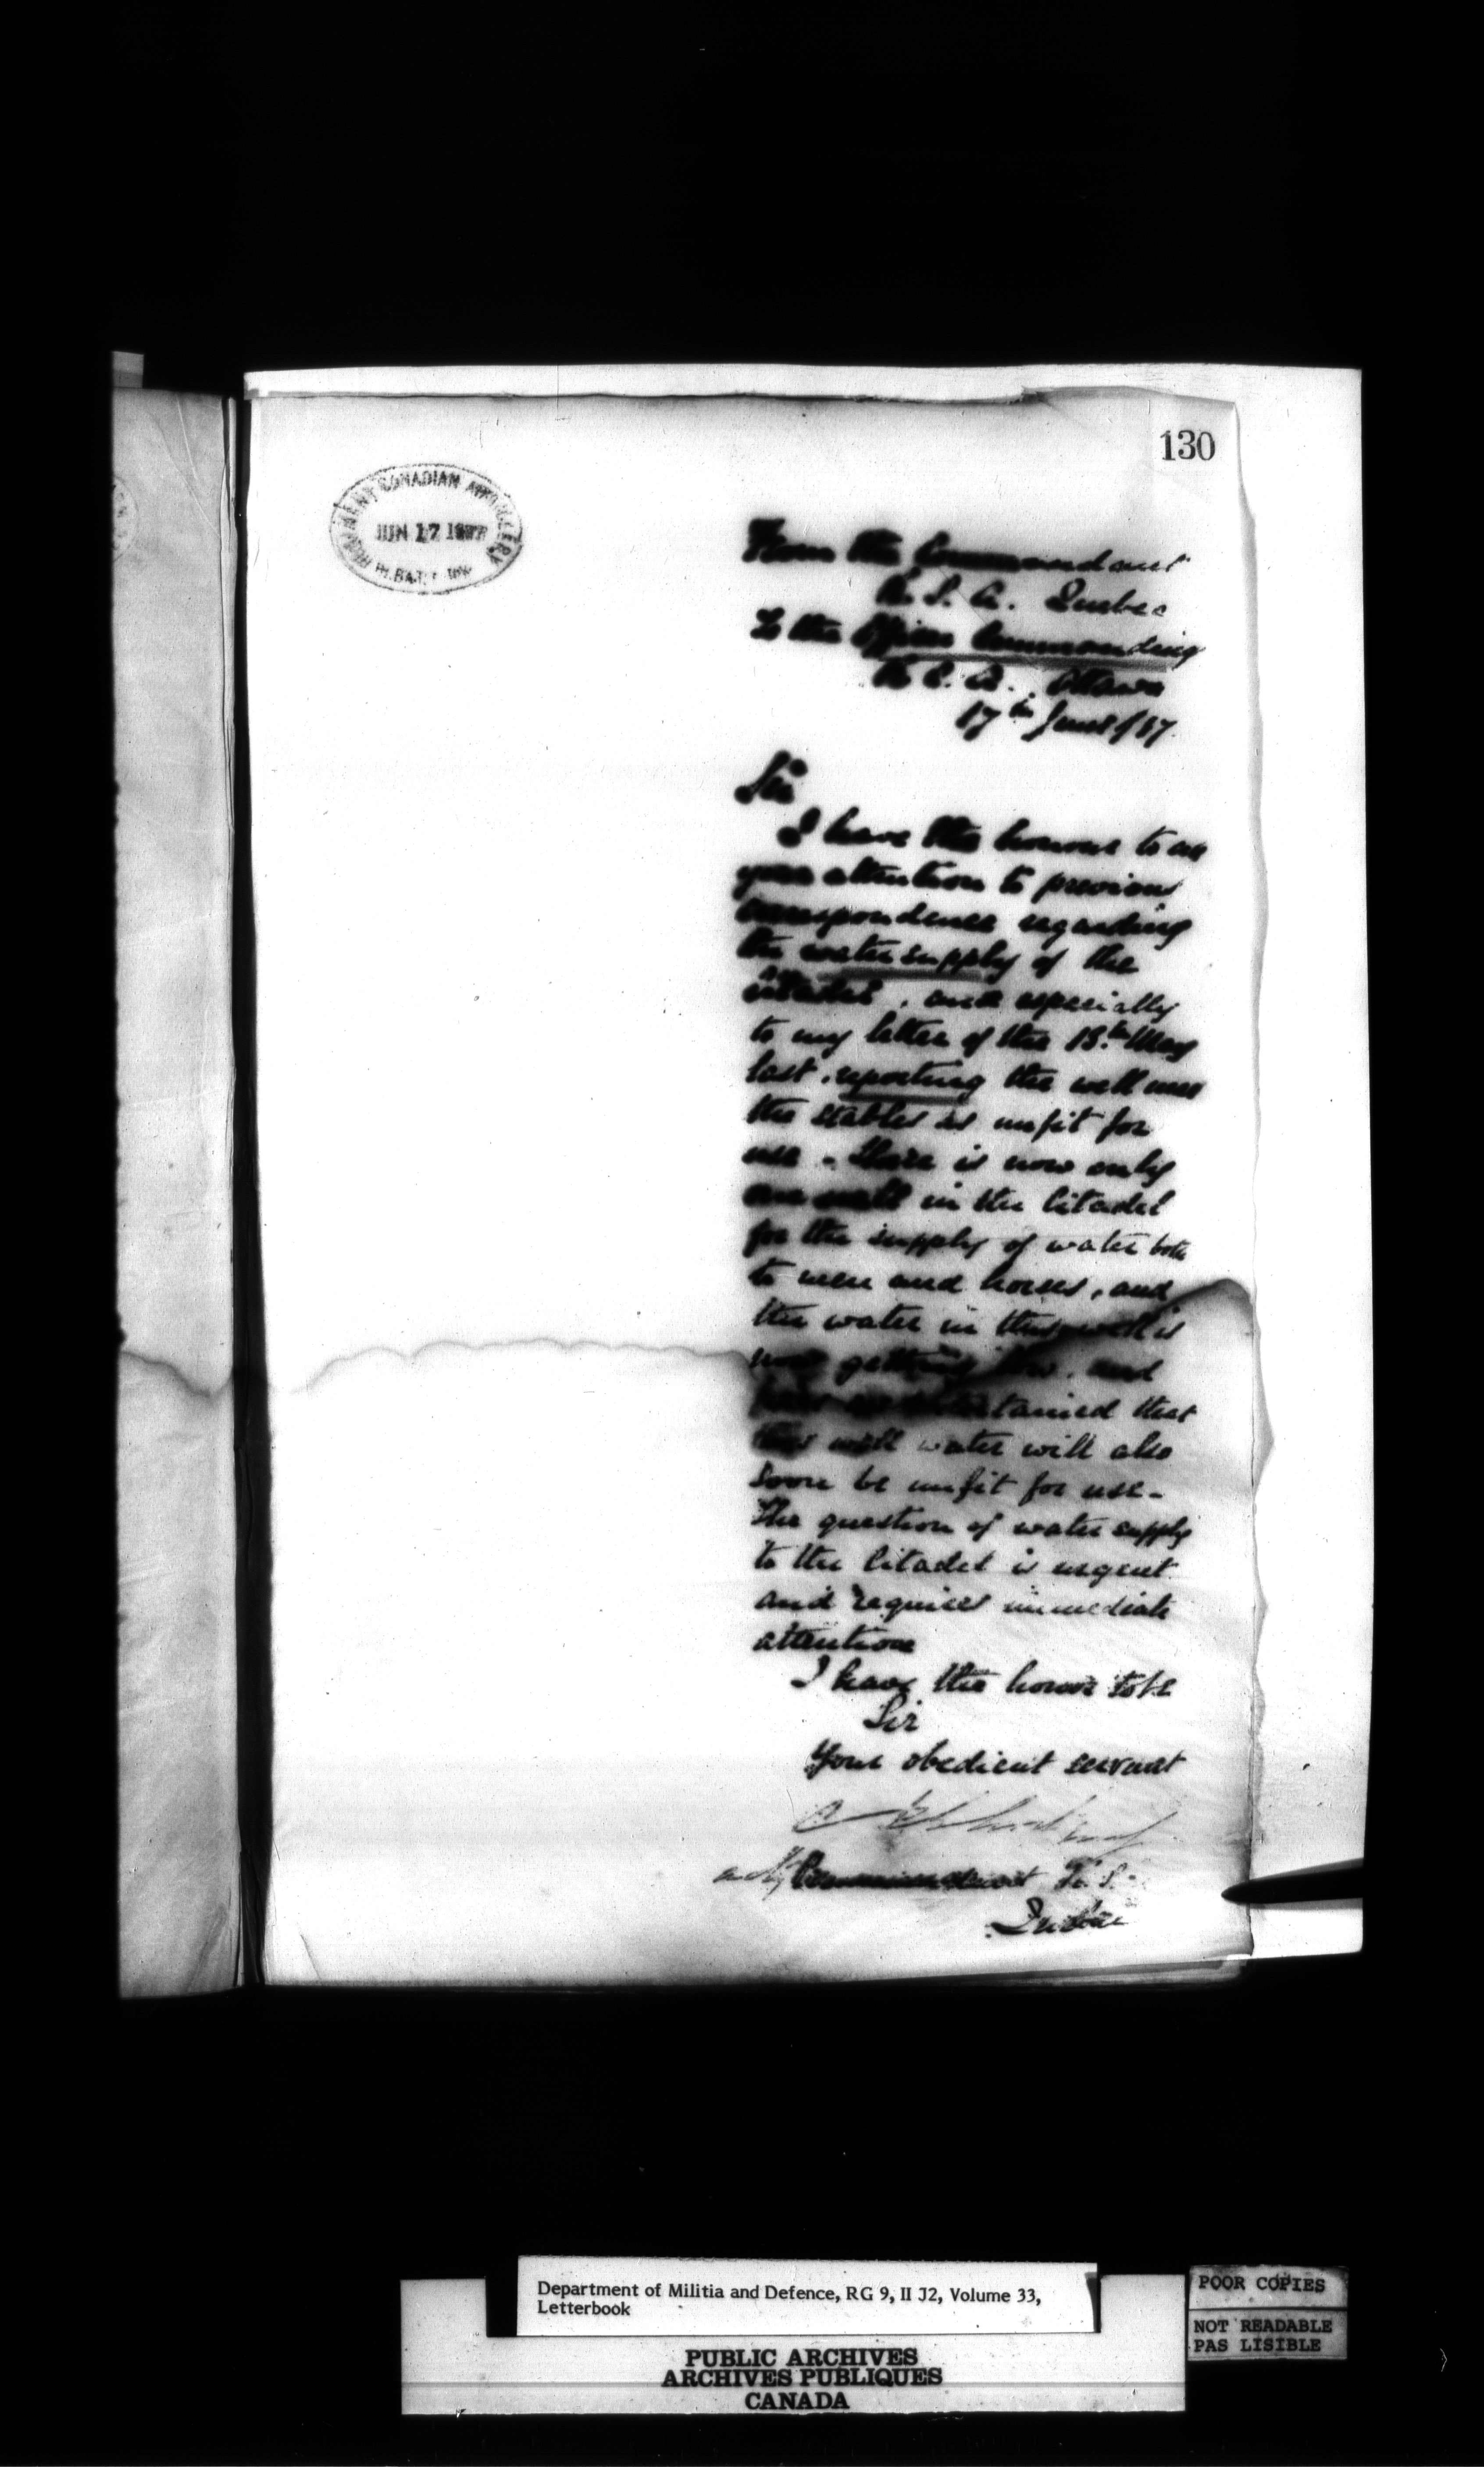 130
REGIMENT CANADIAN ARTILLERY
JUN 17 1887
From the Commandant
R. S. A. Quebec
To the Officer Commanding
R C. A. Ottawa
17th June /87.
Sir
I have the honour to
your attention to previous
correspondence regarding
the water supply of the
citadel, and especially
to my letter of the 18.th May
last, reporting the well near
the stables as unfit for
use - there is now only
one well in the Citadel
for the supply of water both
to men and horses, and
the water in this well is
now getting low, and
tained that
this well water will also
soon be unfit for use -
The question of water supply
to the Citadel is urgent
and requires immediate
attention
I have the honor to be
Sir
Your obedient servant
Commandant
Quebec
Department of Militia and Defence, RG 9, II J2, Volume 33,
Letterbook
PUBLIC ARCHIVES
ARCHIVES PUBLIQUES
CANADA
POOR COPIES
NOT READABLE
PAS LISIBLE